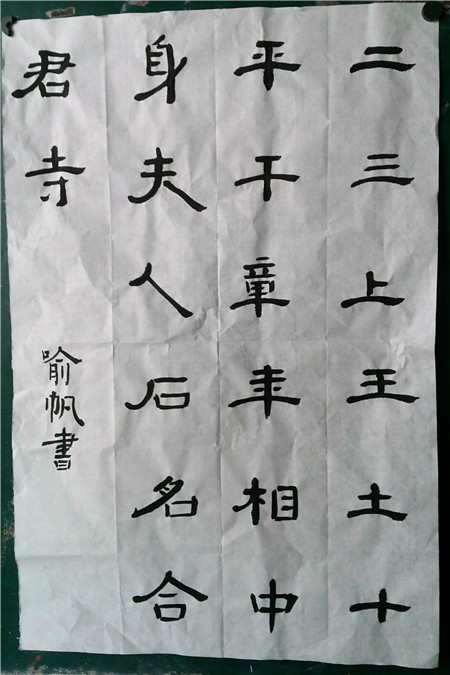 二三上王土十
平干章年相中
身夫人石名合
君寺
喻帆書